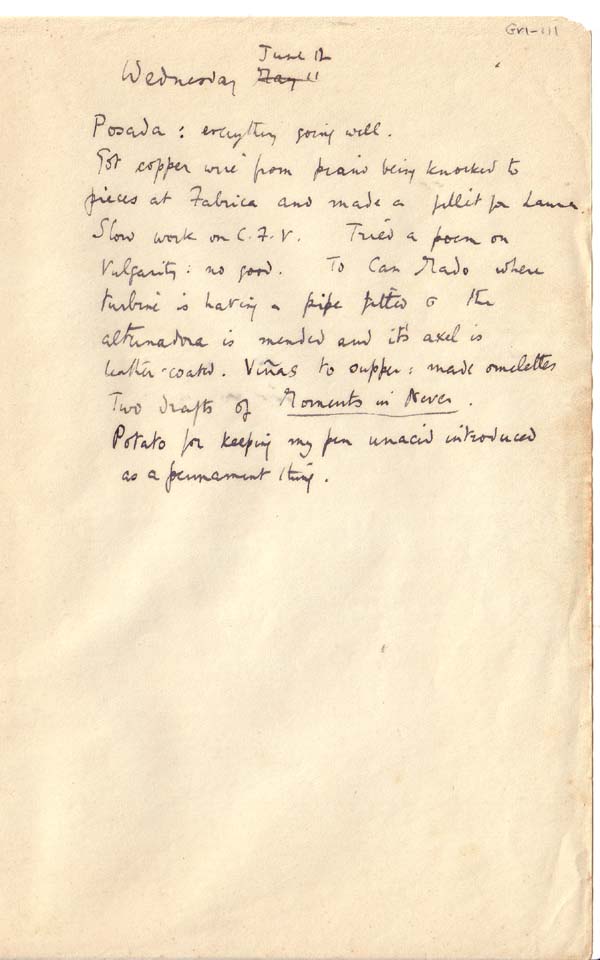 GR1-111
June 12
Wednesday May 11
Posada : everything going well.
Got copper wire from piano being knocked to
pieces at Fabrica and made a fillit for Laura
Slow work on C.F.V. Tried a poem on
Vulgarity: no good. To Can Mado where
turbine is having a pipe fitted & the
alternadora is mended and it's axel is
leather-coated. Viñas to supper: made omelettes
Two drafts of Moments in Never.
Potato for keeping my pen unacid introduced
as a pennament thing.